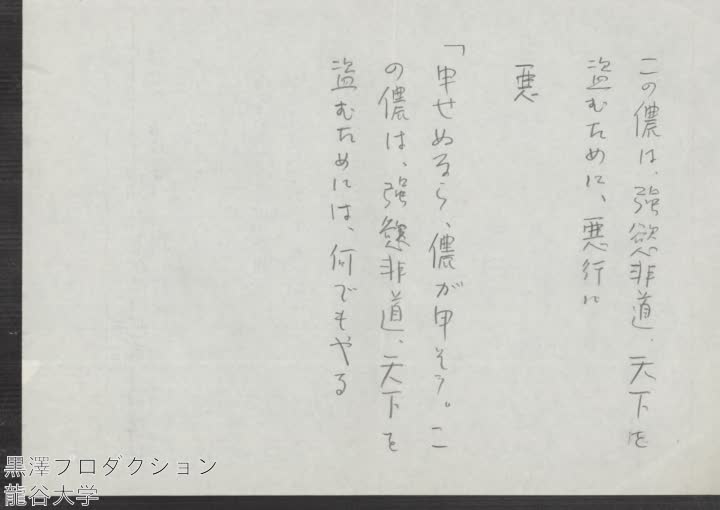 この儂は、強慾非道、天下を
盗むために、悪行に
悪
「申せぬなら、儂が申そう。こ
の儂は、強慾非道、天下を
盗むためには、何でもやる
黒澤プロダクション
龍谷大学